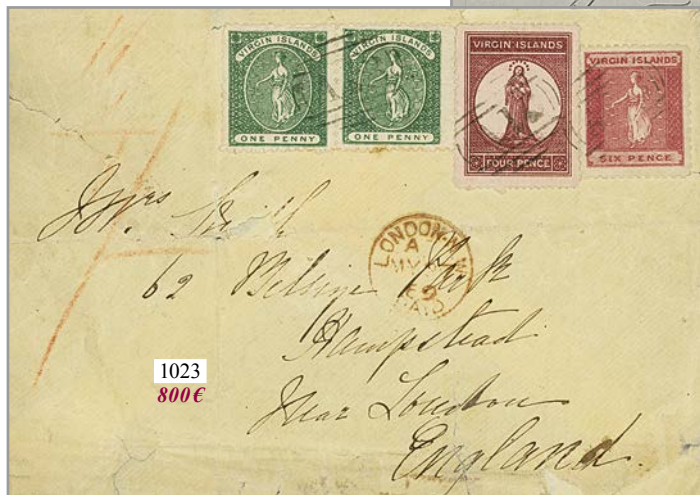 VIRGIN ISLANDS
ONE PENNY
VIRGIN ISLANDS
ONE PENNY
VIRGIN ISLANDS
FOUR PENCE
VIRGIN ISLANDS
SIX PENCE
LONDON·N.W
A
MY
69
PAID
Mrs.
62 Belsize Park
Hampstead
Near London
England.
1023
800€